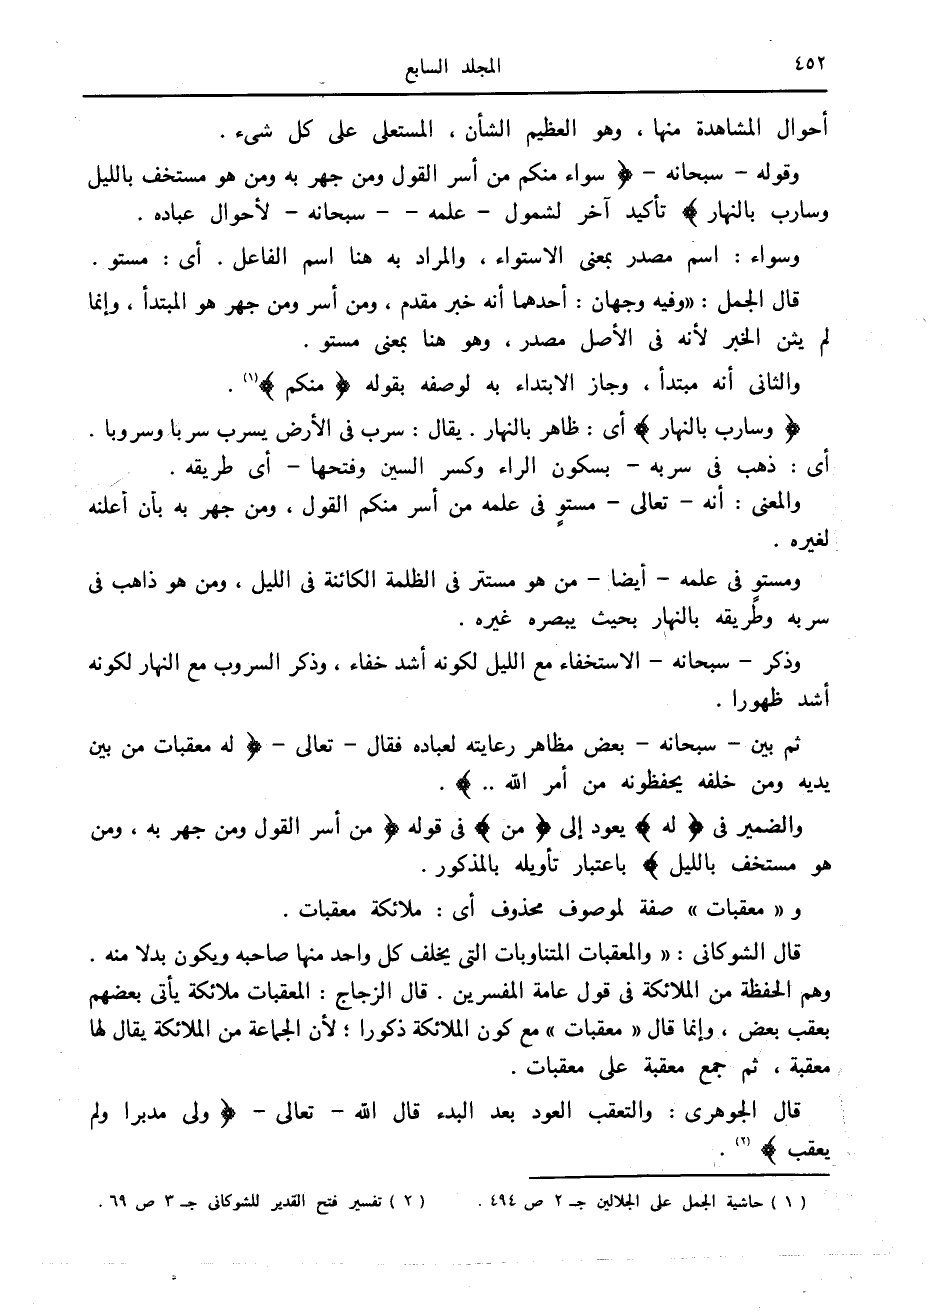 ٤٥٢
المجلد السابع
أحوال المشاهدة منها ، وهو العظيم الشأن ، المستعلى على كل شىء .
وقوله – سبحانه – ﴿ سواء منكم من أسر القول ومن جهر به ومن هو مستخف بالليل
وسارب بالنهار ﴾ تأكيد آخر لشمول – علمه – – سبحانه – لأحوال عباده .
وسواء : اسم مصدر بمعنى الاستواء ، والمراد به هنا اسم الفاعل . أى : مستو .
قال الجمل : «وفيه وجهان : أحدهما أنه خبر مقدم ، ومن أسر ومن جهر هو المبتدأ ، وإنما
لم يثن الخبر لأنه فى الأصل مصدر ، وهو هنا بمعنى مستو .
والثانى أنه مبتدأ ، وجاز الابتداء به لوصفه بقوله ﴿ منكم ﴾(١) .
﴿ وسارب بالنهار ﴾ أى : ظاهر بالنهار . يقال : سرب فى الأرض يسرب سربا وسروبا .
أى : ذهب فى سربه – بسكون الراء وكسر السين وفتحها – أى طريقه .
والمعنى : أنه – تعالى – مستوٍ فى علمه من أسر منكم القول ، ومن جهر به بأن أعلنه
لغيره .
ومستوٍ فى علمه – أيضا – من هو مستتر فى الظلمة الكائنة فى الليل ، ومن هو ذاهب فى
سربه وطريقه بالنهار بحيث يبصره غيره .
وذكر – سبحانه – الاستخفاء مع الليل لكونه أشد خفاء ، وذكر السروب مع النهار لكونه
أشد ظهورا .
ثم بين – سبحانه – بعض مظاهر رعايته لعباده فقال – تعالى – ﴿ له معقبات من بين
يديه ومن خلفه يحفظونه من أمر الله .. ﴾ .
والضمير فى ﴿ له ﴾ يعود إلى ﴿ من ﴾ فى قوله ﴿ من أسر القول ومن جهر به ، ومن
هو مستخف بالليل ﴾ باعتبار تأويله بالمذكور .
و « معقبات » صفة لموصوف محذوف أى : ملائكة معقبات .
قال الشوكانى : « والمعقبات المتناوبات التى يخلف كل واحد منها صاحبه ويكون بدلا منه .
وهم الحفظة من الملائكة فى قول عامة المفسرين . قال الزجاج : المعقبات ملائكة يأتى بعضهم
بعقب بعض ، وإنما قال « معقبات » مع كون الملائكة ذكورا ؛ لأن الجماعة من الملائكة يقال لها
معقبة ، ثم جمع معقبة على معقبات .
قال الجوهرى : والتعقب العود بعد البدء قال الله – تعالى – ﴿ ولى مدبرا ولم
يعقب ﴾ (٢) .
( ١ ) حاشية الجمل على الجلالين جـ ٢ ص ٤٩٤ .
( ٢ ) تفسير فتح القدير للشوكانى جـ ٣ ص ٦٩ .